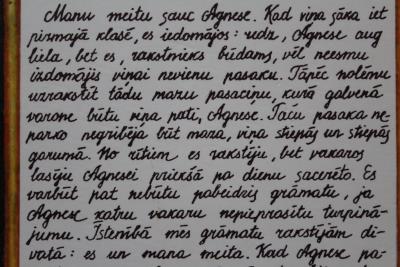 Manu meitu sauc Agnese. Kad viņa sāka iet
pirmajā klasē, es iedomājos: redz, Agnese aug
liela, bet es, rakstnieks būdams, vēl neesmu
izdomājis viņai nevienu pasaku. Tāpēc nolēmu
uzrakstīt tādu mazu pasaciņu, kurā galvenā
varone būtu viņa pati, Agnese. Taču pasaka ne-
parko negribēja būt maza, viņa stiepās un stiepās
garumā. No rītiem es rakstīju, bet vakaros
lasīju Agnesei priekšā pa dienu sacerēto. Es
varbūt pat nebūtu pabeidzis grāmatu, ja
Agnese katru vakaru nepieprasītu turpinā-
jumu. Īstenībā mēs grāmatu rakstījām di-
vatā: es un mana meita. Kad Agnese pa-